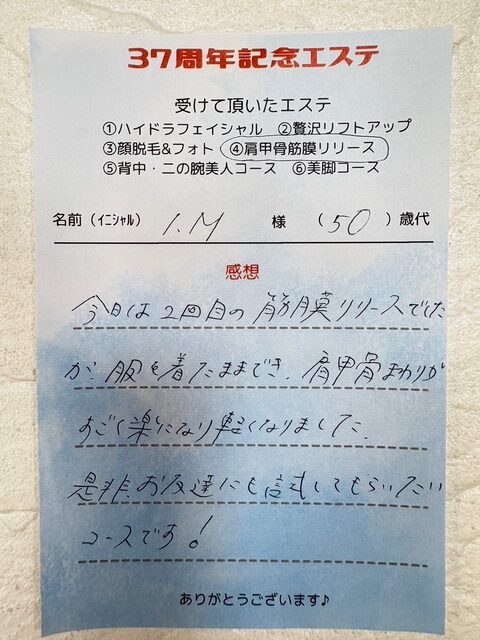 37周年記念エステ
受けて頂いたエステ
①ハイドラフェイシャル ②贅沢リフトアップ
③顔脱毛&フォト ④肩甲骨筋膜リリース
⑤背中・二の腕美人コース ⑥美脚コース
名前(イニシャル) I.M 様 (50)歳代
感想
今日は2回目の筋膜リリースでした
が、服を着たままでき、肩甲骨まわりが
すごく楽になり軽くなりました。
是非お友達にも試してもらいたい
コースです!
ありがとうございます♪